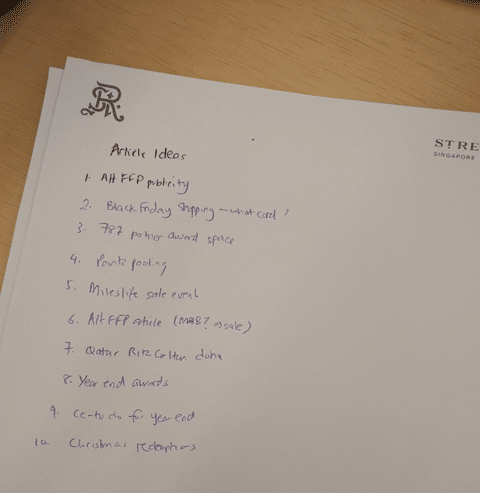 STRE
SINGAPORE
Article Ideas
1. Alt FFP publicity
2. Black Friday Shipping - what card?
3. 787 partner award space
4. Points pooling
5. Mileslife sale event
6. Alt FFP article ( ? => sale)
7. Qatar Ritz Carlton doha
8. Year end awards
9. cc-to do for year end
10. Christmas redemptions